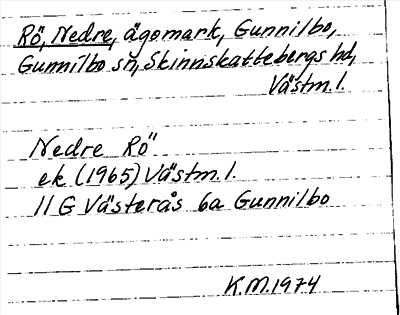 Rö, Nedre, ägomark, Gunnilbo,
Gunnilbo sn, Skinnskattebergs hd,
Västm. l.
Nedre Rö
ek (1965) Västm. l.
11 G Västerås 6a Gunnilbo
K.M. 1974